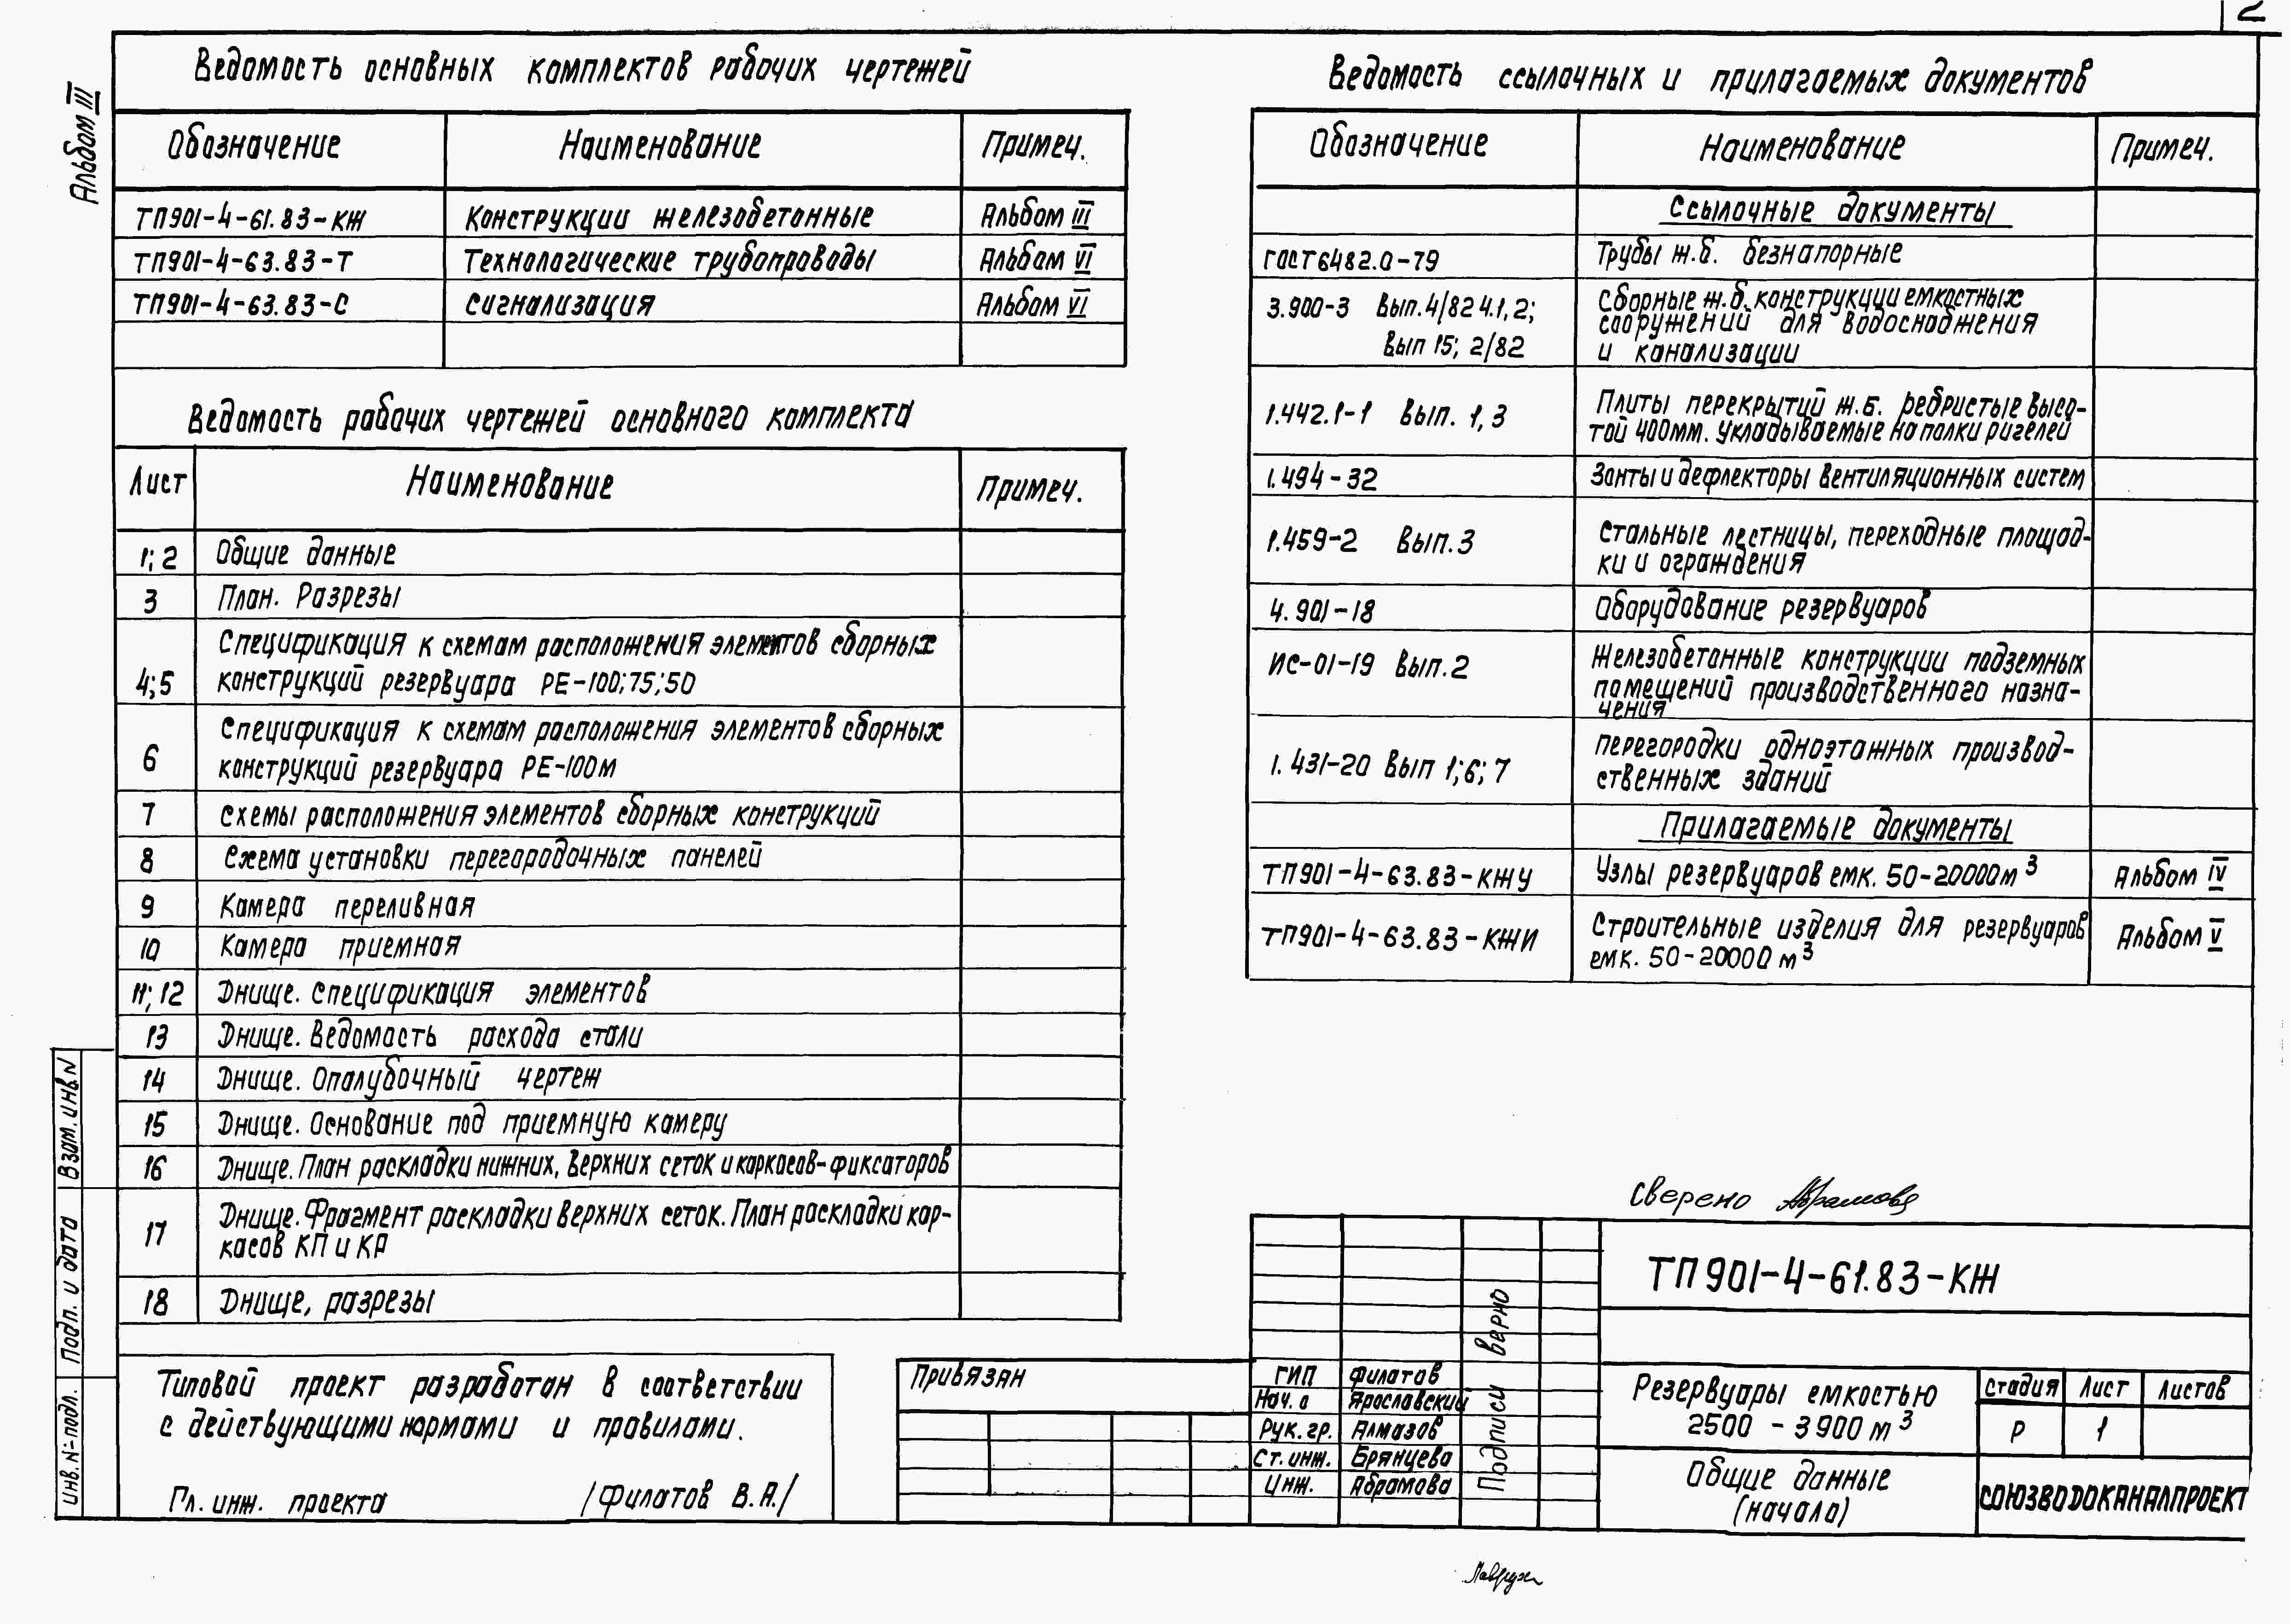 2
Альбом III
Ведомость основных комплектов рабочих чертежей
Обозначение Наименование Примеч.
ТП901-4-61.83-КЖ Конструкции железобетонные Альбом III
ТП901-4-63.83-Т Технологические трубопроводы Альбом VI
ТП901-4-63.83-С Сигнализация Альбом VI
Ведомость рабочих чертежей основного комплекта
Лист Наименование Примеч.
1; 2 Общие данные
3 План. Разрезы
Спецификация к схемам расположения элементов сборных
4;5 конструкций резервуара РЕ-100;75;50
Спецификация к схемам расположения элементов сборных
6 конструкций резервуара РЕ-100м
7 Схемы расположения элементов сборных конструкций
8 Схема установки перегородочных панелей
9 Камера переливная
10 Камера приемная
11; 12 Днище. Спецификация элементов
13 Днище. Ведомость расхода стали
14 Днище. Опалубочный чертеж
15 Днище. Основание под приемную камеру
16 Днище. План раскладки нижних, верхних сеток и каркасов-фиксаторов
17 Днище. Фрагмент раскладки верхних сеток. План раскладки кар-
касов КП и КР
18 Днище, разрезы
Типовой проект разработан в соответствии
с действующими нормами и правилами.
Гл. инж. проекта /Филатов В.А./
Ведомость ссылочных и прилагаемых документов
Обозначение Наименование Примеч.
Ссылочные документы
ГОСТ6482.0-79 Трубы ж.б. безнапорные
3.900-3 Вып.4/82 ч.1,2; Сборные ж.б. конструкции емкостных
сооружений для водоснабжения
Вып 15; 2/82 и канализации
1.442.1-1 Вып. 1,3 Плиты перекрытий ж.б. ребристые высо-
той 400мм. укладываемые на полки ригелей
1.494-32 Зонты и дефлекторы вентиляционных систем
1.459-2 Вып.3 Стальные лестницы, переходные площад-
ки и ограждения
4.901-18 Оборудование резервуаров
ИС-01-19 Вып.2 Железобетонные конструкции подземных
помещений производственного назна-
чения
1.431-20 Вып 1;6;7 перегородки одноэтажных производ-
ственных зданий
Прилагаемые документы
ТП901-4-63.83-КЖУ Узлы резервуаров емк. 50-20000м³ Альбом IV
ТП901-4-63.83-КЖИ Строительные изделия для резервуаров Альбом V
емк. 50-20000 м³
Сверено Абрамова
ТП 901-4-61.83-КЖ
Привязан
ГИП Филатов
Нач. о Ярославский
Рук. гр. Алмазов
Ст. инж. Брянцева
Инж. Абрамова
Подписи верно
Резервуары емкостью
2500 - 3900 м³
Стадия Лист Листов
Р 1
Общие данные
(начало)
СОЮЗВОДОКАНАЛПРОЕКТ
Взам. инв N
Подп. и дата
Инв. № подл.